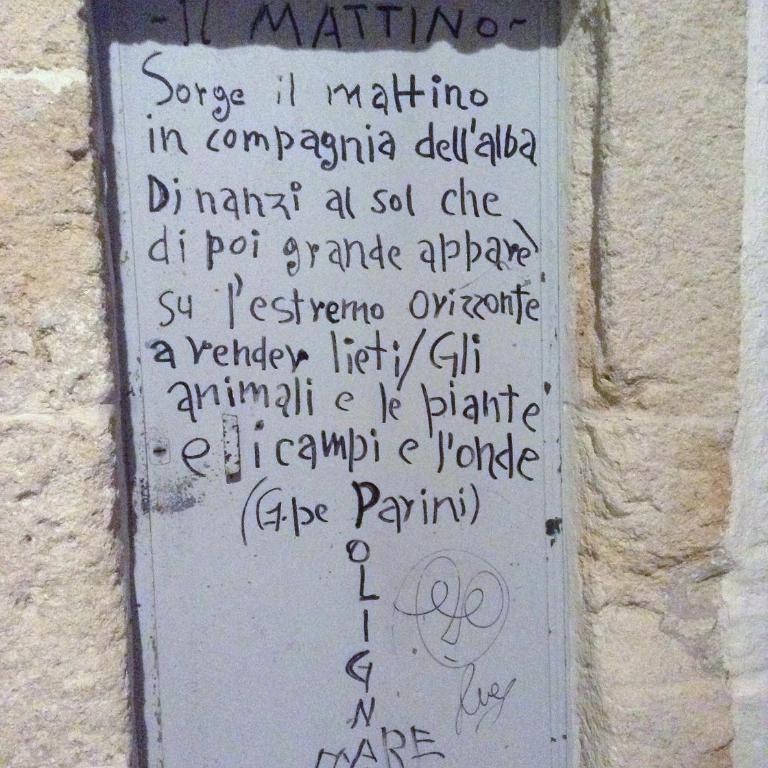 -IL MATTINO-
Sorge il mattino
in compagnia dell'alba
Dinanzi al sol che
di poi grande apparè
su l'estremo orizzonte
a render lieti/Gli
animali e le piante
e i campi e l'onde
(G.pe Parini)
O
L
I
G
N
MARE